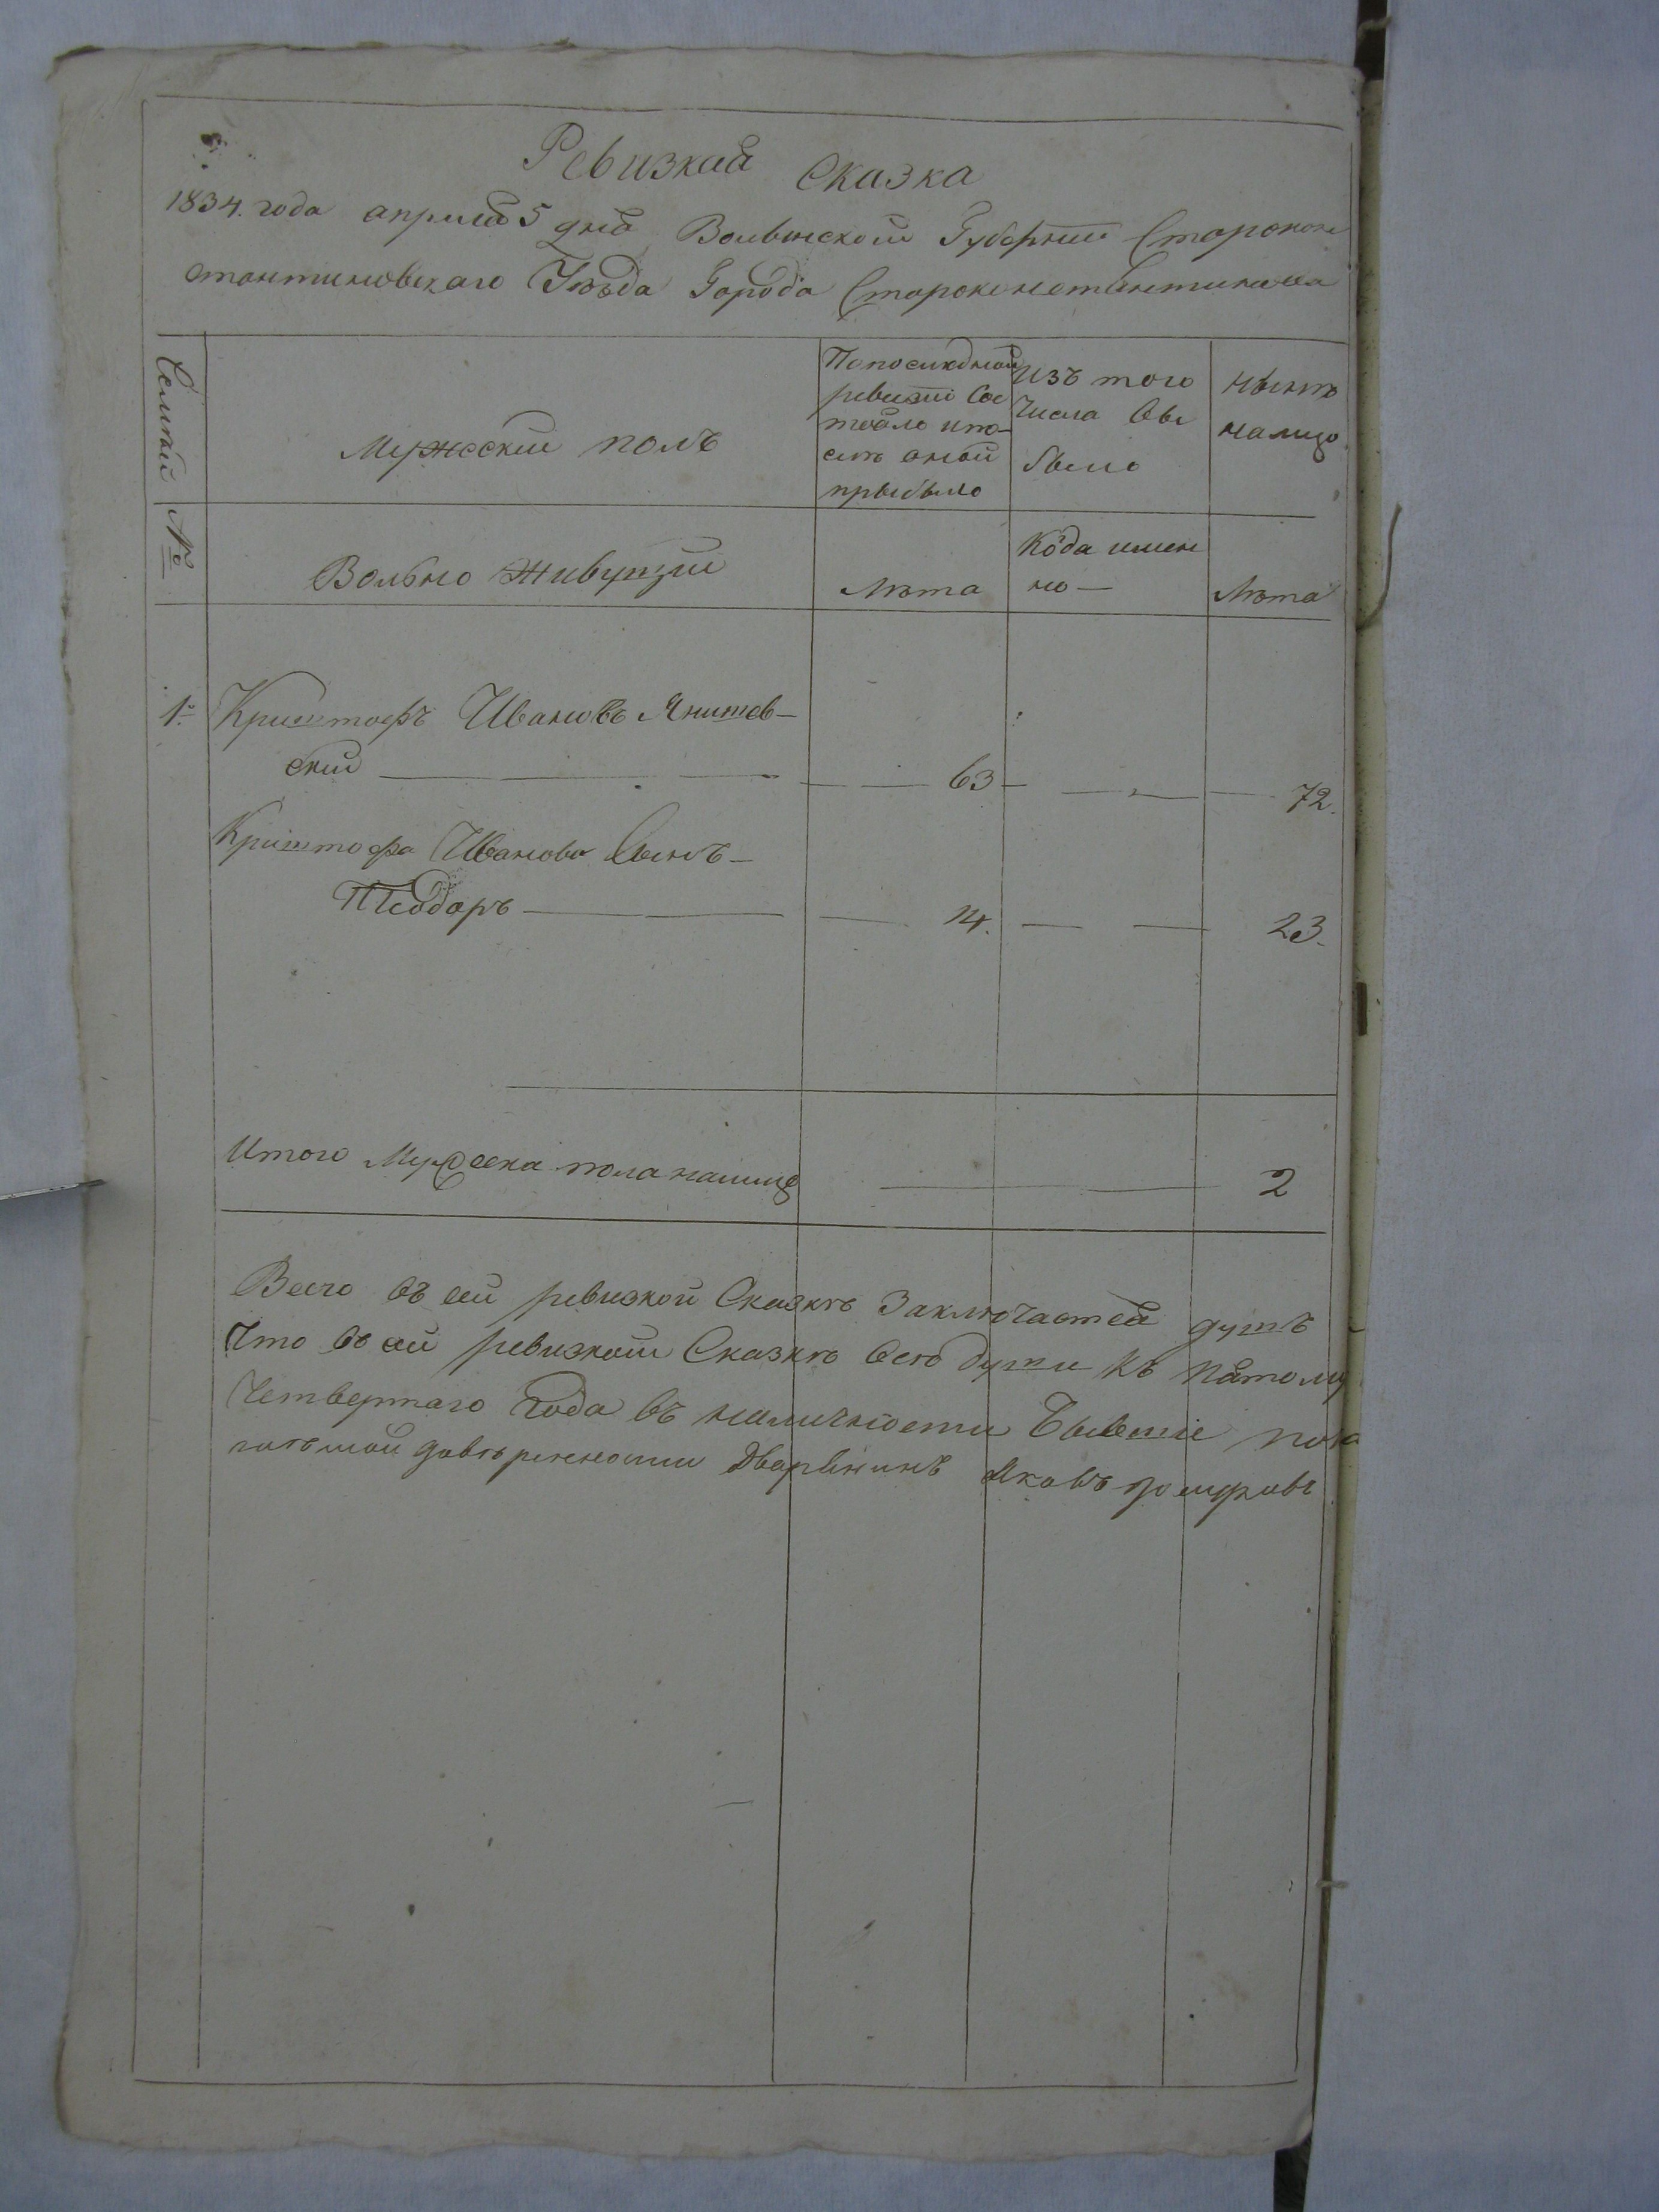 Ревизкая Сказка
1834. года апреля 5 дня Волынской Губернии Старокон
стантиновскаго Уезда Города Староконстантинова
Семьи №
Мужеский полъ
По последней
ревизии Сос
тояло и по-
сле оной
прыбыло
Изъ того
Числа Вы
было
ныне
налицо
Вольно живущии
Лета
Кода имен
но —
Лета
1. Криштофъ Ивановъ Янишев-
ский 63 72.
Криштофа Иванова Сынъ
Теодоръ 14. 23.
Итого Мужеска пола налице 2
Всего въ сей ревизкой Сказке Заключается душъ
Что въ сей ревизкой Сказке все души къ
Четвертаго Года въ наличности Бывшие
Дворянинъ Яковъ